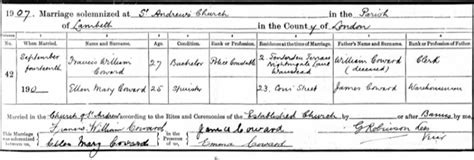 1907. Marriage solemnized at St Andrews Church in the Parish
of Lambeth in the County of London
No. When Married. Name and Surname. Age. Condition. Rank or Profession. Residence at the time of Marriage. Father's Name and Surname. Rank or Profession of Father.
42 September fourteenth 190 Francis William Coward 27 Bachelor Police Constable 2 Terrace Nightingale Lane Wanstead William Coward (deceased) Clerk
Ellen Mary Coward 25 Spinster 23 Street James Coward Warehouseman
Married in the Church of St Andrew according to the Rites and Ceremonies of the Established Church by or after Banns by me,
This Marriage was solemnized between us, Francis William Coward Ellen Mary Coward in the Presence of us, James Coward Emma Coward G Robinson Lees Vicar